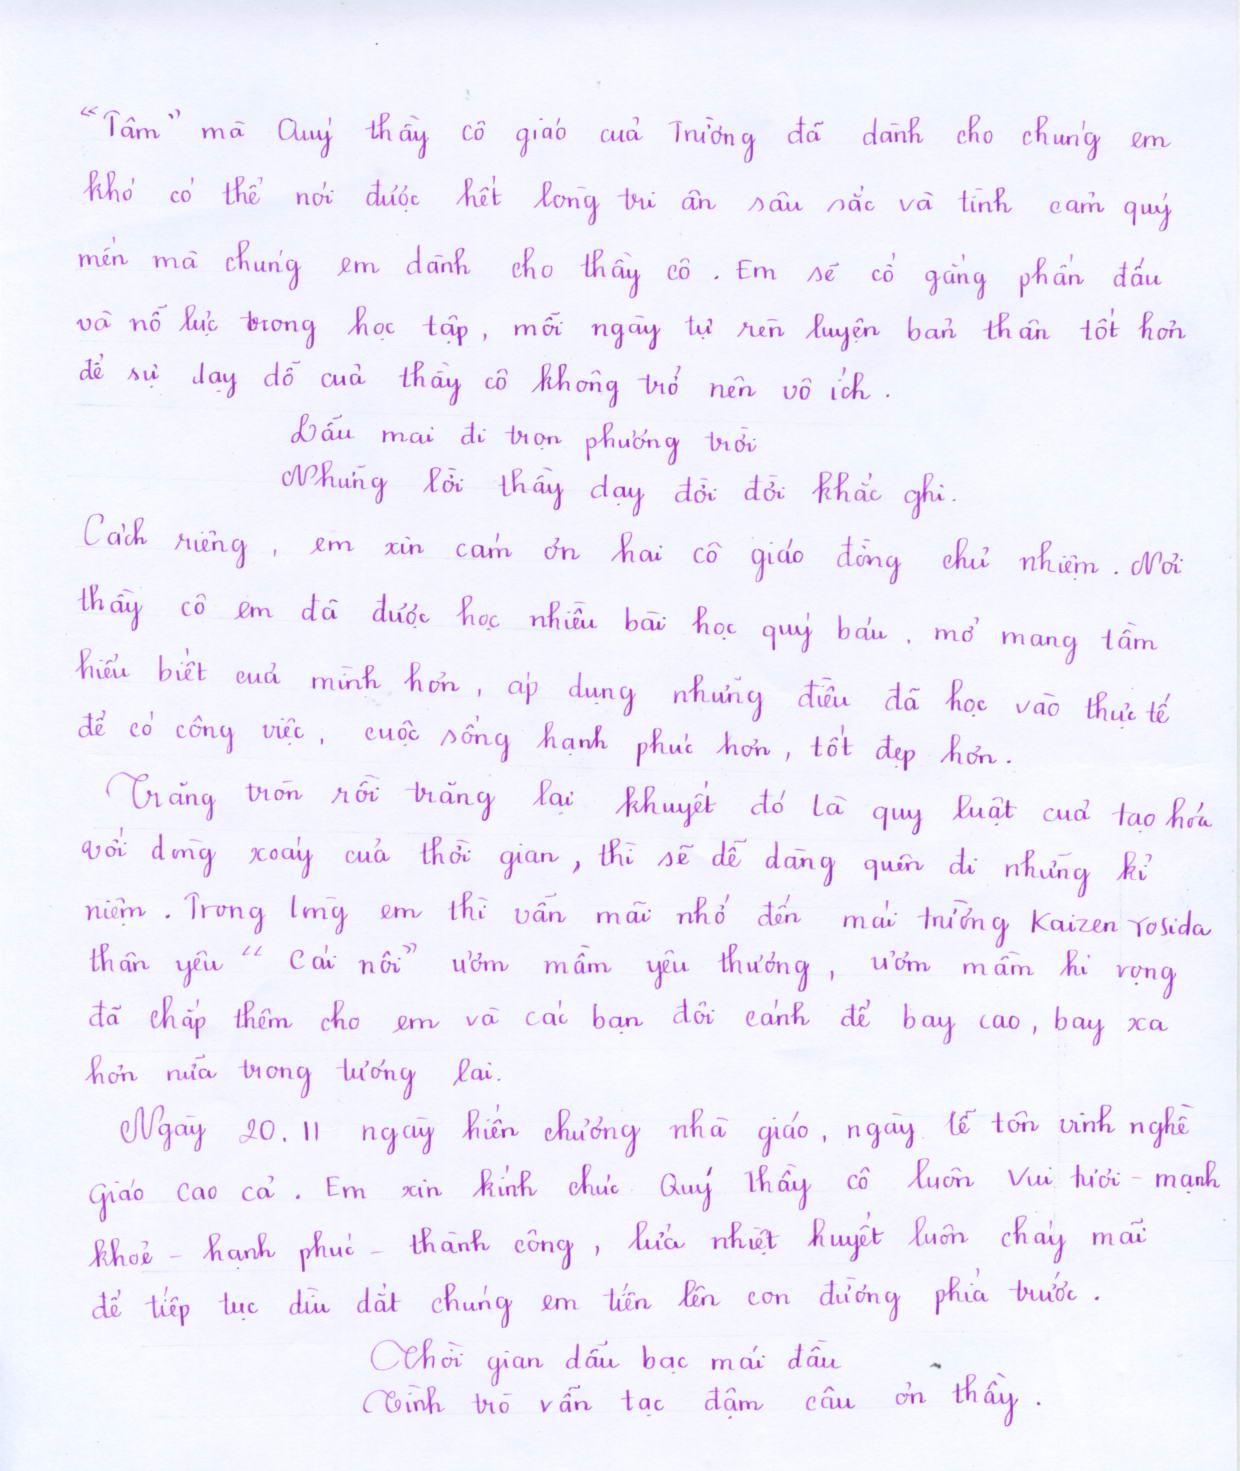 “Tâm” mà Quý thầy cô giáo của Trường đã dành cho chúng em
khó có thể nói được hết lòng tri ân sâu sắc và tình cảm quý
mến mà chúng em dành cho thầy cô. Em sẽ cố gắng phấn đấu
và nỗ lực trong học tập, mỗi ngày tự rèn luyện bản thân tốt hơn
để sự dạy dỗ của thầy cô không trở nên vô ích.
Dẫu mai đi trọn phương trời
Những lời thầy dạy đời đời khắc ghi.
Cách riêng, em xin cám ơn hai cô giáo đồng chủ nhiệm. Nơi
thầy cô em đã được học nhiều bài học quý báu, mở mang tầm
hiểu biết của mình hơn, áp dụng những điều đã học vào thực tế
để có công việc, cuộc sống hạnh phúc hơn, tốt đẹp hơn.
Trăng tròn rồi trăng lại khuyết đó là quy luật của tạo hóa
với dòng xoáy của thời gian, thì sẽ dễ dàng quên đi những kỉ
niệm. Trong lòng em thì vẫn mãi nhớ đến mái trường Kaizen Yosida
thân yêu “Cái nôi” ươm mầm yêu thương, ươm mầm hi vọng
đã chắp thêm cho em và các bạn đôi cánh để bay cao, bay xa
hơn nữa trong tương lai.
Ngày 20.11 ngày hiến chương nhà giáo, ngày lễ tôn vinh nghề
giáo cao cả. Em xin kính chúc Quý Thầy cô luôn vui tươi - mạnh
khoẻ - hạnh phúc - thành công, lửa nhiệt huyết luôn cháy mãi
để tiếp tục dìu dắt chúng em tiến lên con đường phía trước.
Thời gian dẫu bạc mái đầu
Tình trò vẫn tạc đậm câu ơn thầy.